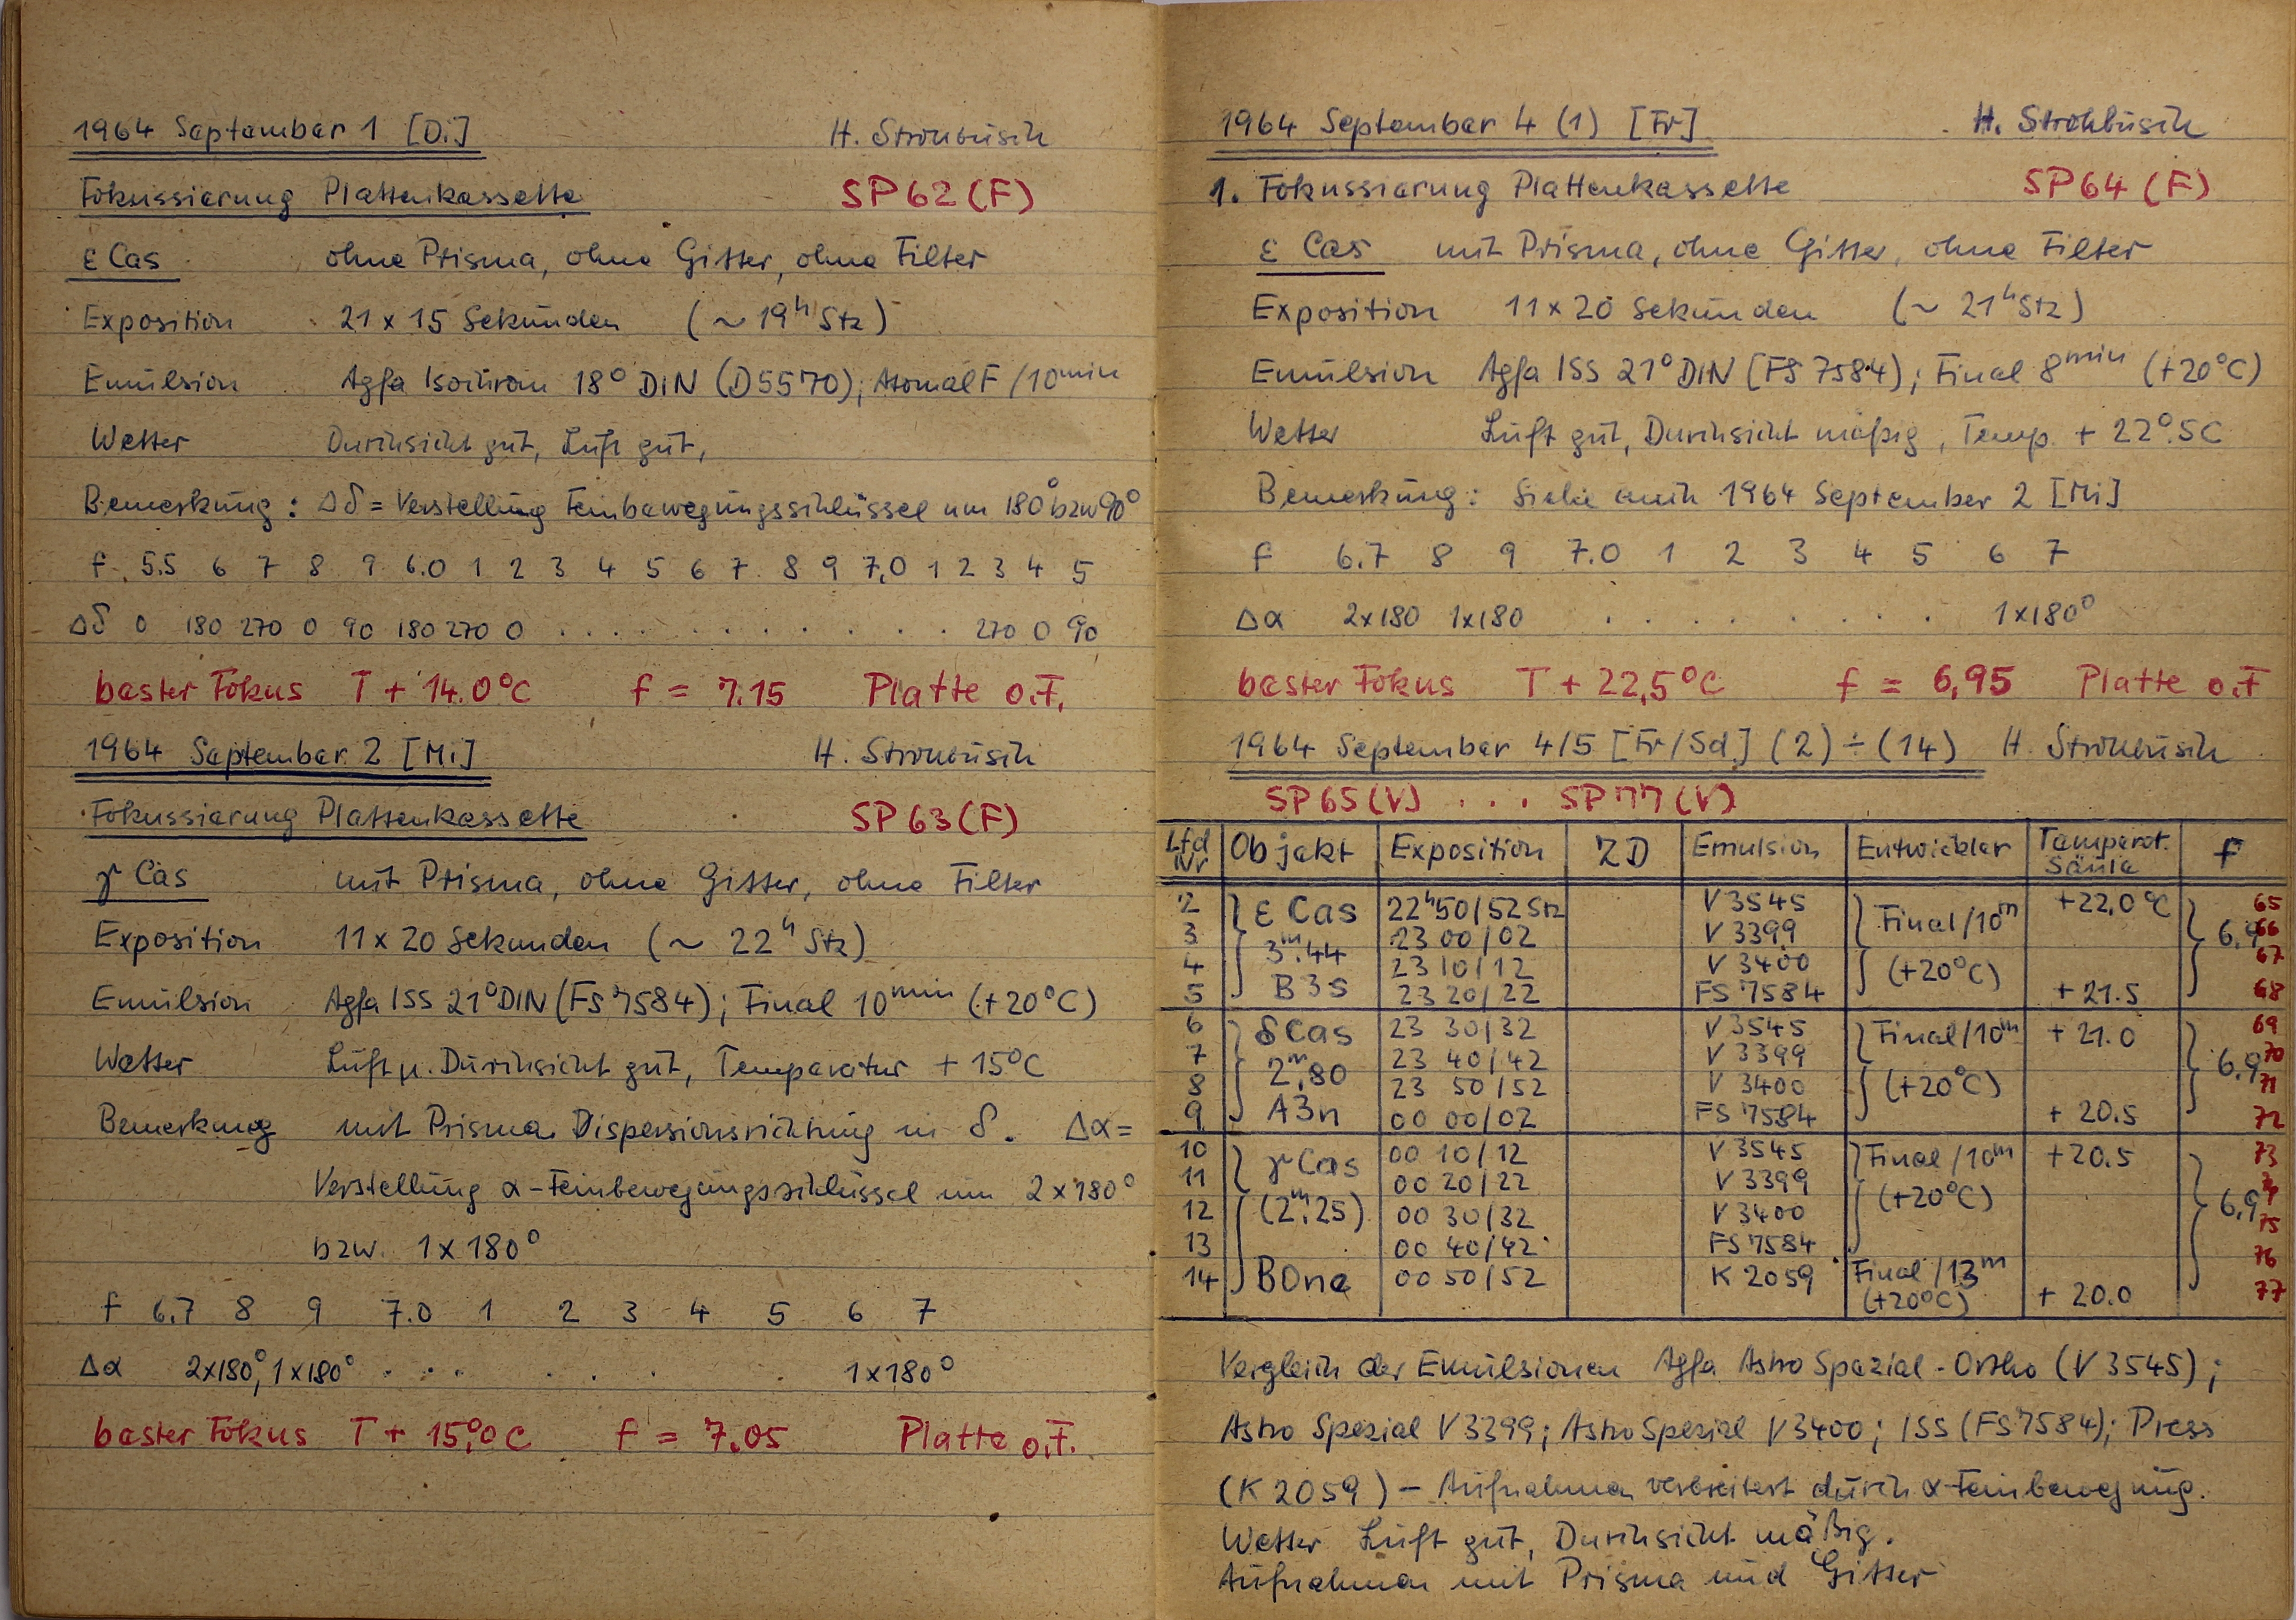 1964 September 1 [Di] H. Strohbusch
Fokussierung Plattenkassette SP 62 (F)
ε Cas ohne Prisma, ohne Gitter, ohne Filter
Exposition 21 x 15 Sekunden (~ 19ʰ Stz)
Emulsion Agfa Isochrom 18° DIN (D 5570); Atomal F / 10ᵐⁱⁿ
Wetter Durchsicht gut, Luft gut,
Bemerkung: Δδ = Verstellung Feinbewegungsschlüssel um 180° bzw 90°
f 5.5 6 7 8 9 6.0 1 2 3 4 5 6 7 8 9 7.0 1 2 3 4 5
Δδ 0 180 270 0 90 180 270 0 . . . . . . . . . . 270 0 90
bester Fokus T + 14.0°C f = 7.15 Platte o.F.
1964 September 2 [Mi] H. Strohbusch
Fokussierung Plattenkassette SP 63 (F)
γ Cas mit Prisma, ohne Gitter, ohne Filter
Exposition 11 x 20 Sekunden (~ 22ʰ Stz)
Emulsion Agfa ISS 21° DIN (FS 7584); Final 10ᵐⁱⁿ (+20°C)
Wetter Luft u. Durchsicht gut, Temperatur + 15°C
Bemerkung mit Prisma Dispersionsrichtung in δ. Δα =
Verstellung α-Feinbewegungsschlüssel um 2 x 180°
bzw. 1 x 180°
f 6.7 8 9 7.0 1 2 3 4 5 6 7
Δα 2x180°, 1x180° . . . . . . . 1x180°
bester Fokus T + 15,0°C f = 7.05 Platte o.F.
1964 September 4 (1) [Fr] H. Strohbusch
1. Fokussierung Plattenkassette SP 64 (F)
ε Cas mit Prisma, ohne Gitter, ohne Filter
Exposition 11 x 20 Sekunden (~ 21ʰ Stz)
Emulsion Agfa ISS 21° DIN (FS 7584); Final 8ᵐⁱⁿ (+20°C)
Wetter Luft gut, Durchsicht mäßig, Temp. + 22°.5C
Bemerkung: Siehe auch 1964 September 2 [Mi]
f 6.7 8 9 7.0 1 2 3 4 5 6 7
Δα 2x180 1x180 . . . . . . . 1x180°
bester Fokus T + 22,5°C f = 6,95 Platte o.F
1964 September 4/5 [Fr/Sd] (2) ÷ (14) H. Strohbusch
SP 65 (V) . . . SP 77 (V)
Lfd Nr Objekt Exposition ZD Emulsion Entwickler Temperat. Säule f
2 ε Cas 22ʰ50/52 Stz V 3545 Final/10ᵐ +22,0°C 65
3 3ᵐ.44 23 00/02 V 3399 6.9 66
4 23 10/12 V 3400 (+20°C) 67
5 B3s 23 20/22 FS 7584 + 21.5 68
6 δ Cas 23 30/32 V 3545 Final/10ᵐ + 21.0 69
7 2ᵐ.80 23 40/42 V 3399 6.9 70
8 23 50/52 V 3400 (+20°C) 71
9 A3n 00 00/02 FS 7584 + 20.5 72
10 γ Cas 00 10/12 V 3545 Final/10ᵐ +20.5 73
11 00 20/22 V 3399 (+20°C) 74
12 (2ᵐ.25) 00 30/32 V 3400 6.9 75
13 00 40/42 FS 7584 76
14 B0ne 00 50/52 K 2059 Final/13ᵐ (+20°C) + 20.0 77
Vergleich der Emulsionen Agfa Astro Spezial-Ortho (V 3545);
Astro Spezial V 3399; Astro Spezial V 3400; ISS (FS 7584); Press
(K 2059) – Aufnahmen verbreitert durch α-Feinbewegung.
Wetter Luft gut, Durchsicht mäßig.
Aufnahmen mit Prisma und Gitter